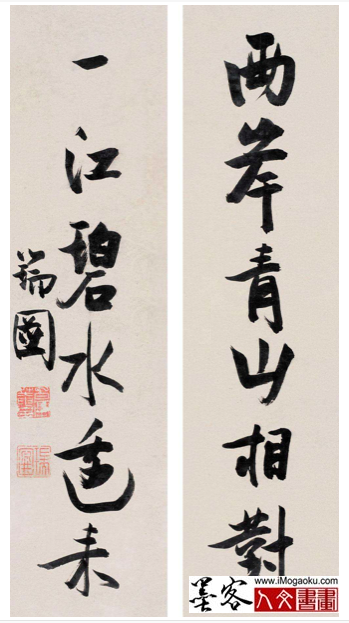 两岸青山相對
一江碧水來
瑞圖
墨客
www.iMogaoku.com
人文書畫